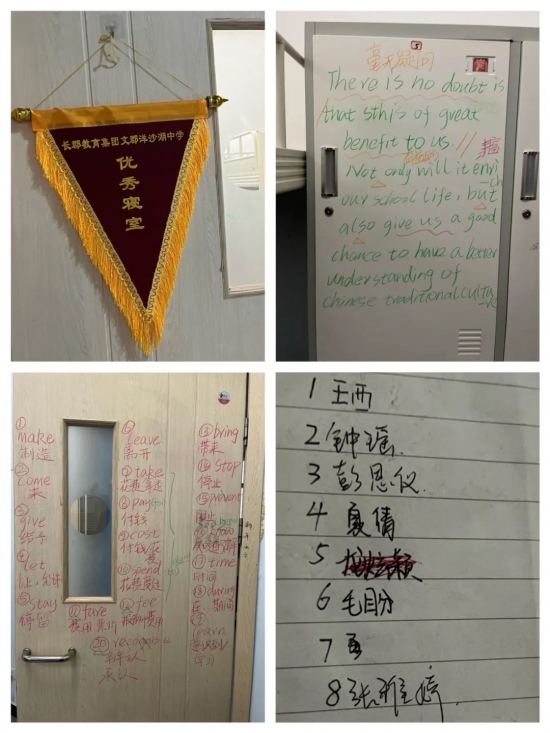 长郡教育集团文郡洋沙湖中学
优秀寝室
5
毫无疑问
There is no doubt is
that sth is of great
benefit to us. //
Not only will it enri
-ch
our school life, but
also give us a good
chance to have a better
understanding of
chinese traditional cultu
-re
① make
制造
② come
来
③ give
给予
④ let
让,允许
⑤ stay
停留
leave
离开
take
花费
pay
付钱
⑨ cost
付钱/花费
spend
花费
fare
费用
fee
费用
⑳ recognise
承认
⑬ bring
带来
⑭ stop
停止
⑮ prevent
阻止
⑰ time
时间
⑱ during
在 期间
learn
学习
1 王西
2 钟瑶
3 彭思仪
4 夏倩
5
6 毛目分
7
8 张雅婷